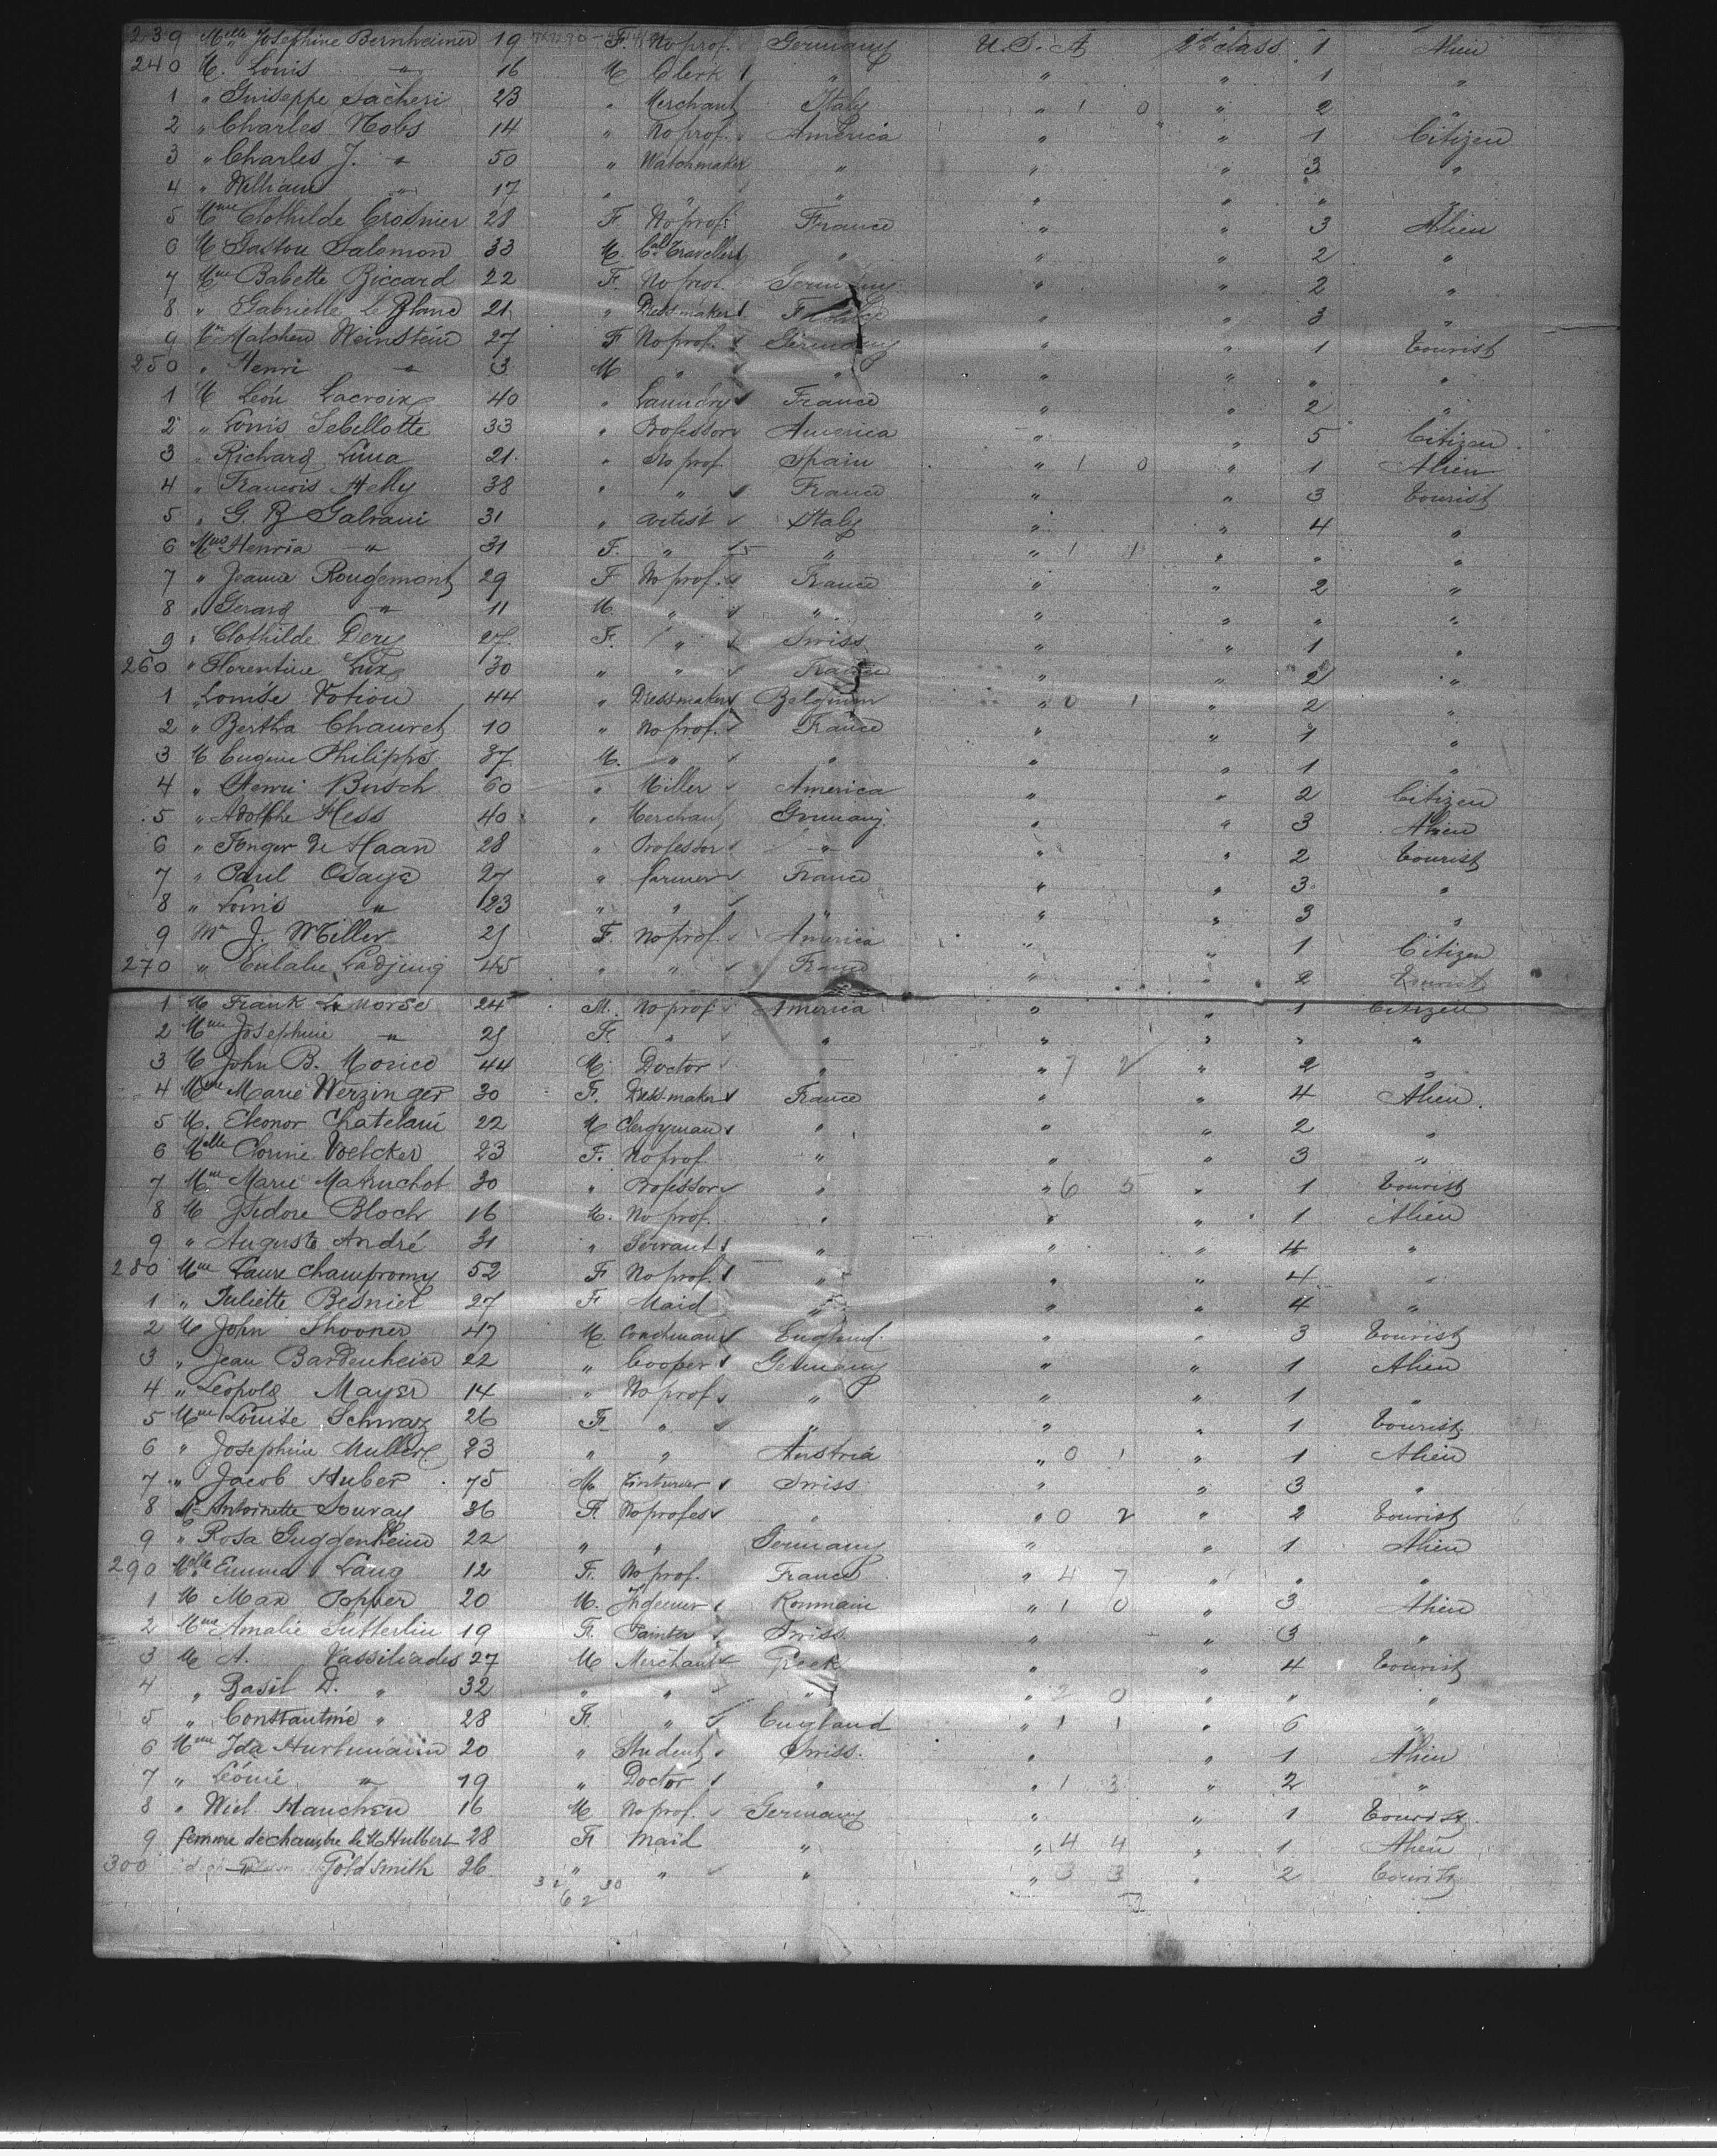 239 Mlle Josephine Bernheimer 19 F. No prof. Germany U.S.A. 2d class 1 Alien
240 M. Louis " 16 M Clerk " " " 1 "
1 " Guiseppe Sacheri 23 " Merchant Italy " 1 0 " 2 "
2 " Charles Nobs 14 " No prof. America " " 1 Citizen
3 " Charles J. " 50 " Watchmaker " " " 3 "
4 " William " 17 " " " " " " "
5 Mme Clothilde Crosnier 28 F. No prof. France " " 3 Alien
6 M Gaston Salomon 33 M. Cal Traveller " " " 2 "
7 Mme Babette Riccard 22 F. No prof. Germany " " 2 "
8 " Gabrielle Le Blanc 21 " Dressmaker France " " 3 "
9 Me Matchen Weinstein 27 F No prof. Germany " " 1 Tourist
250 " Henri " 3 M " " " " " "
1 M Léon Lacroix 40 " Laundry France " " 2 "
2 " Louis Sebillotte 33 " Professor America " " 5 Citizen
3 " Richard Luna 21 " No prof Spain " 1 0 " 1 Alien
4 " Francois Helly 38 " " France " " 3 Tourist
5 " G. B Galvani 31 " artist Italy " " 4 "
6 Mme Henria " 31 F. " " " 1 1 " " "
7 " Jeanne Rougemont 29 F No prof. France " " 2 "
8 " Gerard " 11 M. " " " " " "
9 " Clothilde Dery 27 F. " Swiss " " 1 "
260 " Florentine Lux 30 " " France " " 2 "
1 " Louise Votion 44 " Dressmaker Belgium " 0 1 " 2 "
2 " Bertha Chauvet 10 " No prof. France " " 1 "
3 M Eugene Philipps 37 M. " " " " 1 "
4 " Henri Busch 60 " Miller America " " 2 Citizen
5 " Adolphe Hess 40 " Merchant Germany " " 3 Alien
6 " Fonger de Haan 28 " Professor " " " 2 Tourist
7 " Paul Osaya 27 " farmer France " " 3 "
8 " Louis " 23 " " " " " 3 "
9 Mr J. Miller 25 F. No prof. America " " 1 Citizen
270 " Eulalie Ladjing 45 " " France " " 2 Tourist
1 M Frank La Morse 24 M. No prof America " " 1 Citizen
2 Mme Josephine " 25 F. " " " " " "
3 M John B. Morice 44 M. Doctor " " 7 2 " 2 "
4 Mme Marie Werzinger 30 F. Dressmaker France " " 4 Alien.
5 M. Eleonor Chatelain 22 M Clergyman " " " 2 "
6 Melle Corine Voelcker 23 F. No prof " " " 3 "
7 Mme Marie Matruchot 30 " Professor " " 6 5 " 1 Tourist
8 M Isidore Bloch 16 M. No prof. " " " 1 Alien
9 " Auguste André 31 " Servant " " " 4 "
280 Mme Laure Champromy 52 F No prof. " " " 4 "
1 " Juliette Besnier 27 F Maid " " " 4 "
2 M John Shooner 47 M. Coachman England. " " 3 Tourist
3 " Jean Bardenheier 22 " Cooper Germany " " 1 Alien
4 " Leopold Mayer 14 " No prof " " " 1 "
5 Mme Louise Schwaz 26 F. " " " " 1 Tourist
6 " Josephine Muller 23 " " Austria " 0 1 " 1 Alien
7 " Jacob Huber 75 M. Swiss " " 3 "
8 Me Antoinette Louvay 36 F. No profes " " 0 2 " 2 Tourist
9 " Rosa Guggenheim 22 " " Germany " " 1 Alien
290 Melle Emma Lang 12 F. No prof. France " 4 7 " " "
1 M Max Popper 20 M. Roumain " 1 0 " 3 Alien
2 Mme Amalie Sutterlin 19 F. Painter Swiss " " 3 "
3 M A. Vassiliades 27 M Merchant Greek " " 4 Tourist
4 " Basil D. " 32 " " " " 2 0 " " "
5 " Constantine " 28 F. " England " 1 1 " 6 "
6 Mme Ida Hurlimann 20 " Student Swiss. " " 1 Alien
7 " Léonie " 19 " Doctor " " 1 3 " 2 "
8 " Wiel. Hanchen 16 M No prof. Germany " " 1 Tourist
9 femme de chambre de M Hulbert 28 F. Maid " " 4 4 " 1 Alien
300 Goldsmith 26 " " " " 3 3 " 2 Tourist
32 30
62